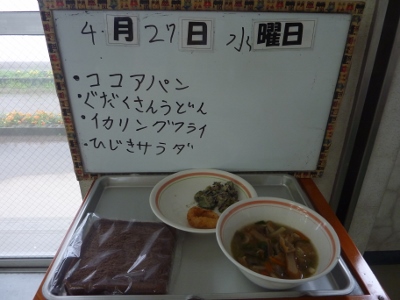 4月27日 水曜日
・ココアパン
・ぐだくさんうどん
・イカリングフライ
・ひじきサラダ